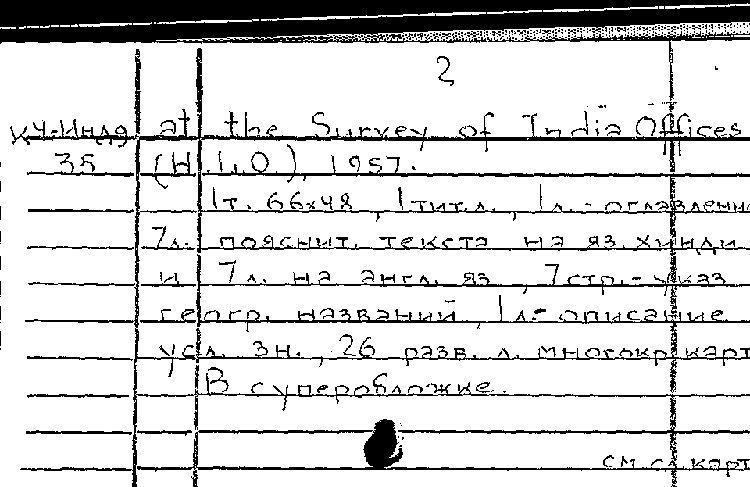 2
КЧ-Инд9 at the Survey of India Offices
35 (H.L.O.), 1957.
1т. 66х48, 1 тит.л., 1л.-оглавлени
7л. пояснит. текста на яз. хинди
и 7л. на англ. яз., 7стр.-указ.
геогр. названий, 1л.-описание
усл. зн., 26 разв. л. многокр. карт
В суперобложке.
см. сл. карт